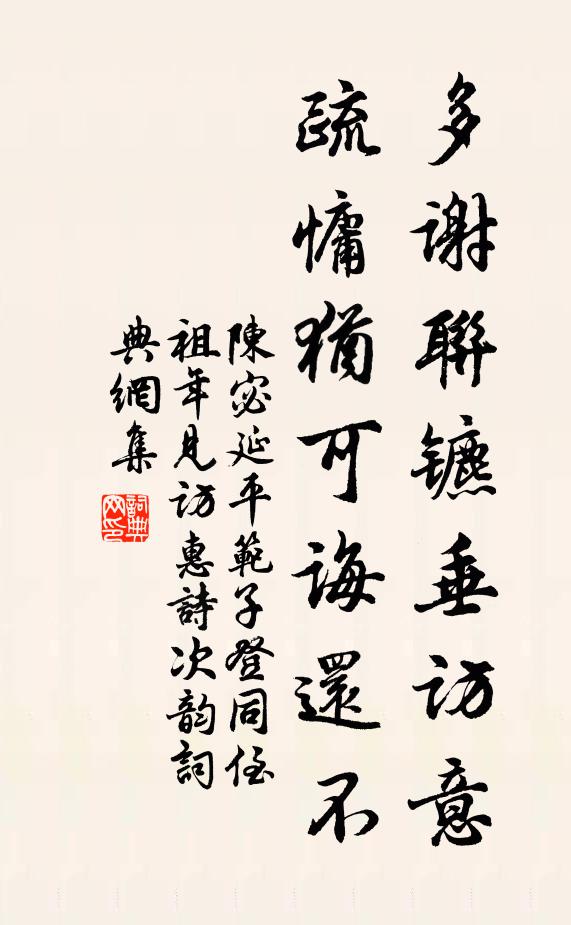 多谢聯镳垂访意
疏慵猶可诲還不
陳宓延平範子登同侄
祖年見访惠詩次韵詞
典網集
詞典网印